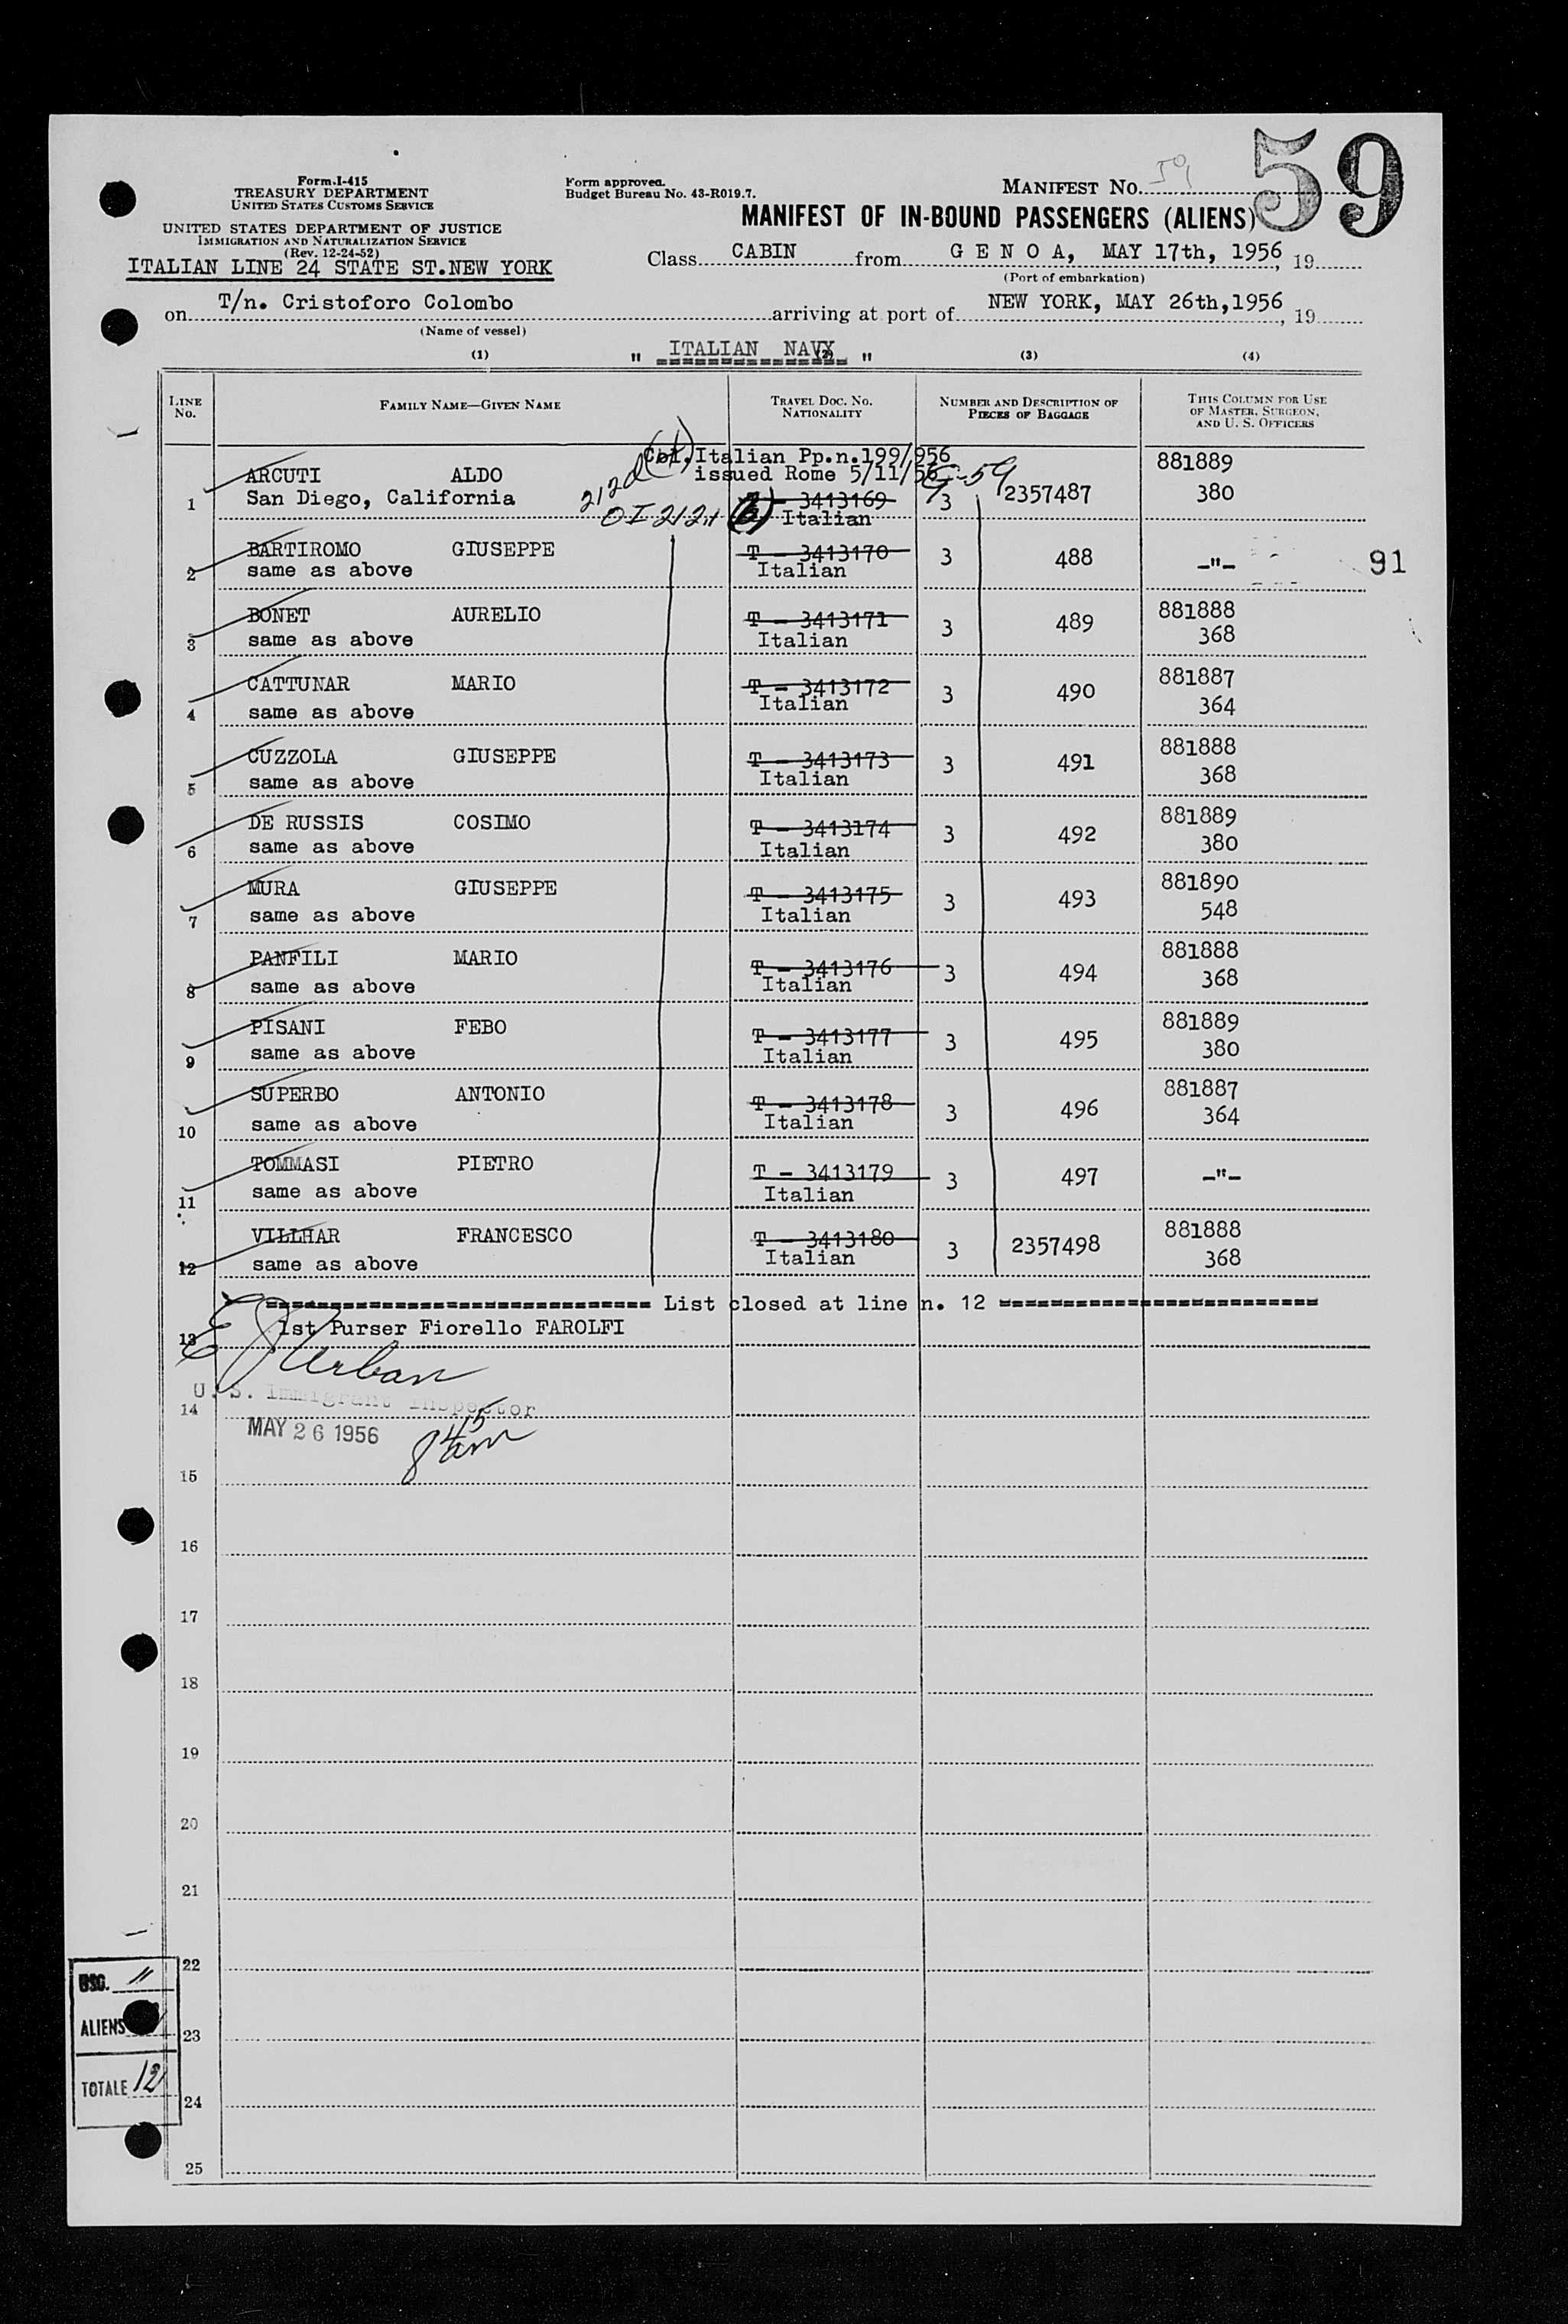 59
Form.I-415
TREASURY DEPARTMENT
UNITED STATES CUSTOMS SERVICE
Form approved.
Budget Bureau No. 43-R019.7.
MANIFEST No. 59
UNITED STATES DEPARTMENT OF JUSTICE
IMMIGRATION AND NATURALIZATION SERVICE
(Rev. 12-24-52)
MANIFEST OF IN-BOUND PASSENGERS (ALIENS)
ITALIAN LINE 24 STATE ST.NEW YORK
Class CABIN from G E N O A, MAY 17th, 1956, 19
(Port of embarkation)
on T/n. Cristoforo Colombo arriving at port of NEW YORK, MAY 26th,1956, 19
(Name of vessel)
" ITALIAN NAVY "
(1) (2) (3) (4)
LINE No. FAMILY NAME—GIVEN NAME TRAVEL DOC. No. NATIONALITY NUMBER AND DESCRIPTION OF PIECES OF BAGGAGE THIS COLUMN FOR USE OF MASTER, SURGEON, AND U. S. OFFICERS
Col.Italian Pp.n.199/956
issued Rome 5/11/56
1 ARCUTI ALDO T - 3413169 3 2357487 881889
San Diego, California 212d OI 212d Italian 380
2 BARTIROMO GIUSEPPE T - 3413170 3 488 -"- 91
same as above Italian
3 BONET AURELIO T - 3413171 3 489 881888
same as above Italian 368
4 CATTUNAR MARIO T - 3413172 3 490 881887
same as above Italian 364
5 CUZZOLA GIUSEPPE T - 3413173 3 491 881888
same as above Italian 368
6 DE RUSSIS COSIMO T - 3413174 3 492 881889
same as above Italian 380
7 MURA GIUSEPPE T - 3413175 3 493 881890
same as above Italian 548
8 PANFILI MARIO T - 3413176 3 494 881888
same as above Italian 368
9 PISANI FEBO T - 3413177 3 495 881889
same as above Italian 380
10 SUPERBO ANTONIO T - 3413178 3 496 881887
same as above Italian 364
11 TOMMASI PIETRO T - 3413179 3 497 -"-
same as above Italian
12 VILLHAR FRANCESCO T - 3413180 3 2357498 881888
same as above Italian 368
============================== List closed at line n. 12 =========================
13 1st Purser Fiorello FAROLFI
E J Urban
U. S. Immigrant Inspector
14
MAY 26 1956 8 45 am
15
16
17
18
19
20
21
22
USC. 11
ALIENS
23
TOTALE 12
24
25